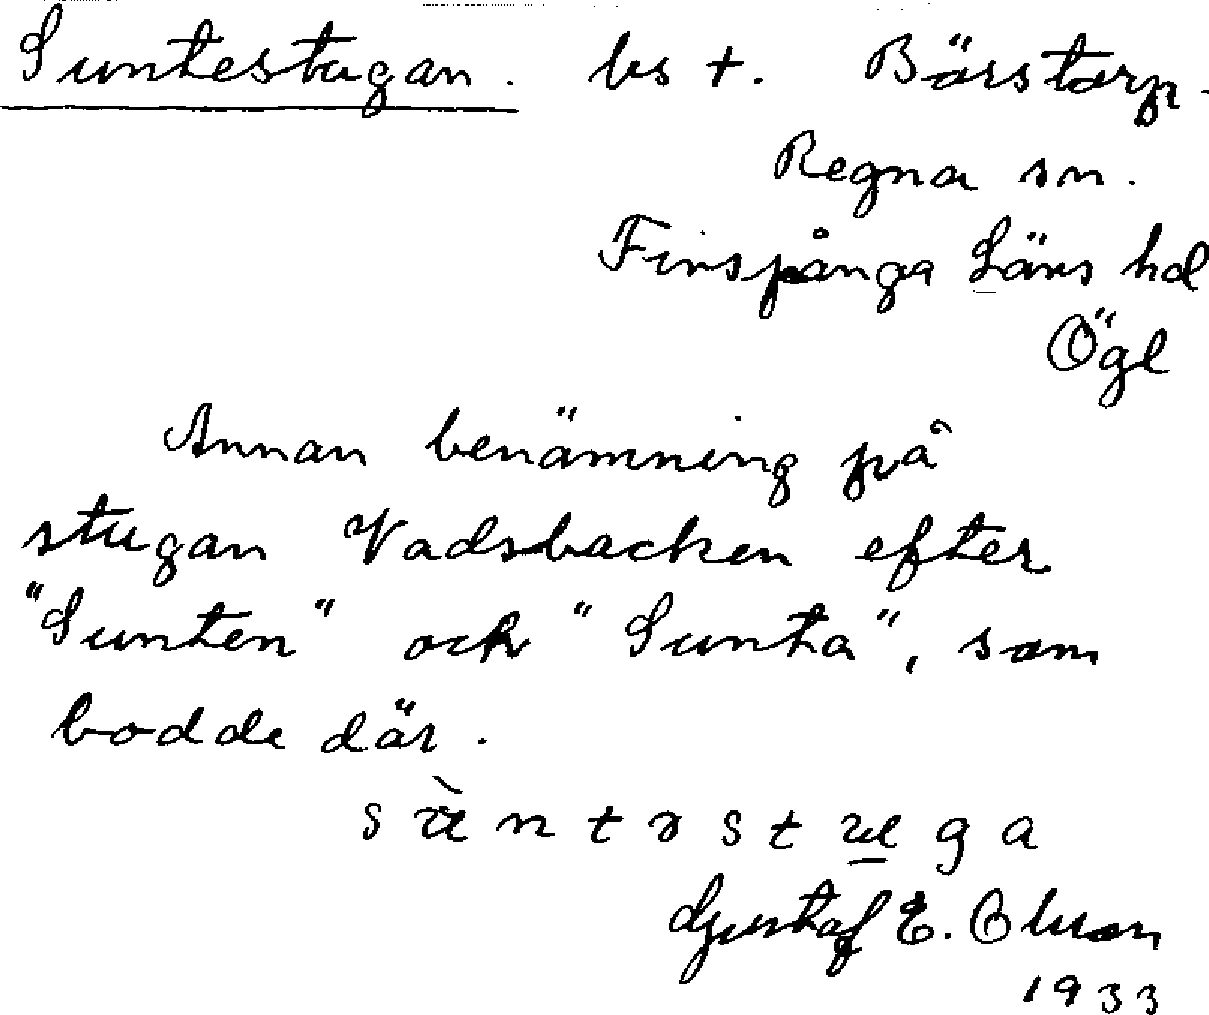 Suntestugan. bs t. Börstorp.
Regna sn.
Finspånga Läns hd
Ögl
Annan benämning på
stugan Vadsbacken efter
"Sunten" och "Sunta", som
bodde där.
Gustaf E. Olsson
1933